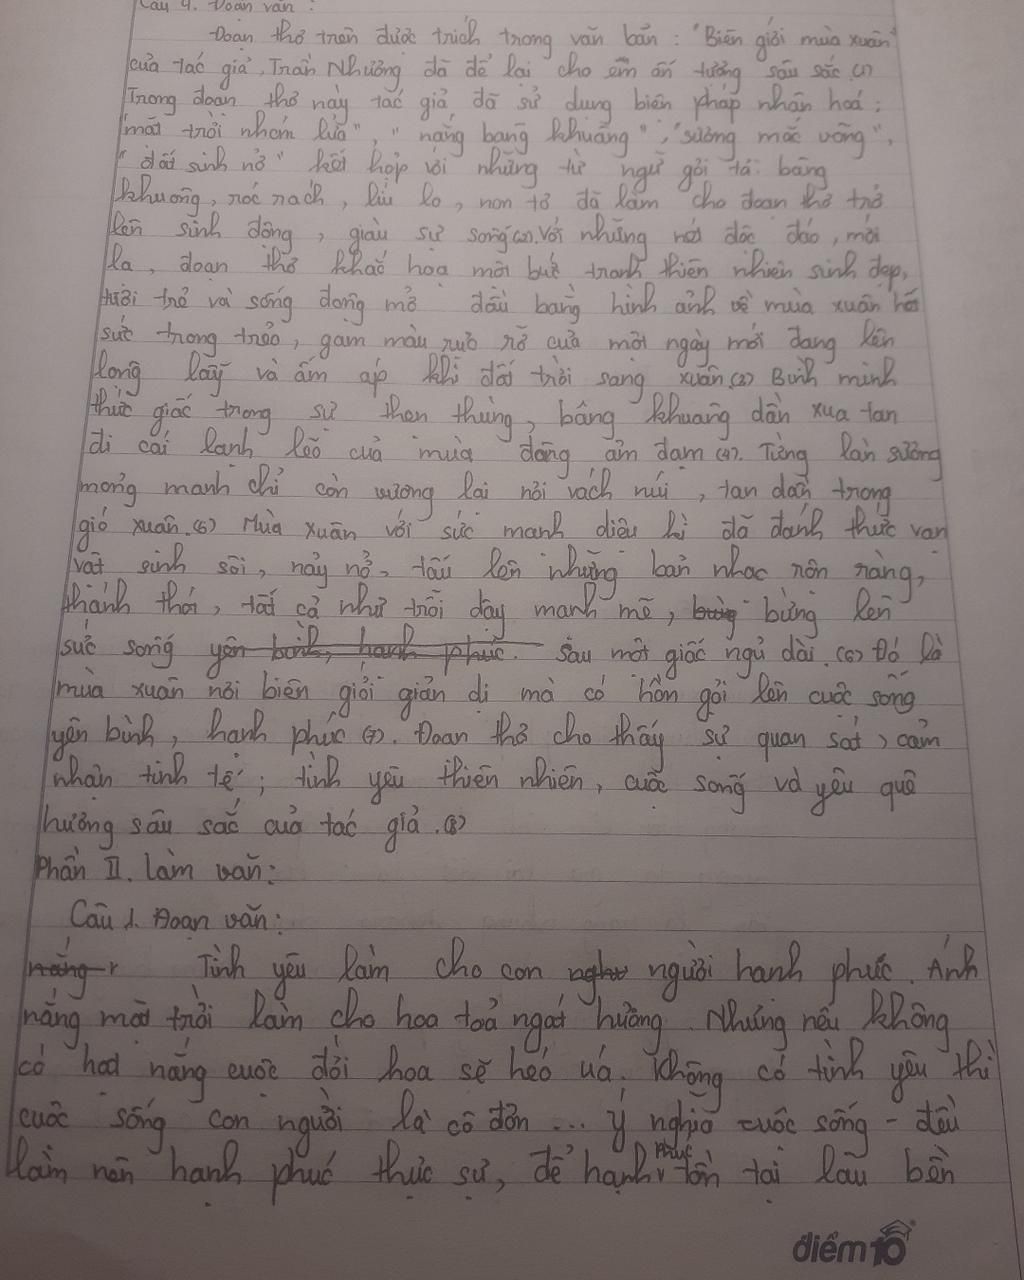 Câu 4. Đoạn văn:
Đoạn thơ trên được trích trong văn bản: "Biên giới mùa xuân"
của tác giả, Trần Nhương đã để lại cho em ấn tượng sâu sắc.(1)
Trong đoạn thơ này tác giả đã sử dụng biện pháp nhân hoá:
"mặt trời nhóm lửa", "nắng bâng khuâng", "sương mắc võng",
"đất sinh nở" kết hợp với những từ ngữ gợi tả: bâng
khuâng, róc rách, líu lo, non tơ đã làm cho đoạn thơ trở
lên sinh động, giàu sức sống(2). Với những nét độc đáo, mới
lạ, đoạn thơ khắc hoạ một bức tranh thiên nhiên sinh đẹp,
tươi trẻ và sống động mở đầu bằng hình ảnh về mùa xuân hết
sức trong trẻo, gam màu rực rỡ của một ngày mới đang lên
lộng lẫy và ấm áp khi đất trời sang xuân.(3) Bình minh
thức giấc trong sự then thùng, bâng khuâng dần xua tan
đi cái lạnh lẽo của mùa đông ảm đạm (4). Từng làn sương
mỏng manh chỉ còn vương lại nơi vách núi, tan dần trong
gió xuân.(5) Mùa xuân với sức mạnh diệu kì đã đánh thức vạn
vật sinh sôi, nảy nở, tấu lên những bản nhạc rộn ràng,
thánh thót, tất cả như trỗi dậy mạnh mẽ, bừng lên
sức sống yên bình, hạnh phúc. Sau một giấc ngủ dài.(6) Đó là
mùa xuân nơi biên giới giản dị mà có hồn gợi lên cuộc sống
yên bình, hạnh phúc (7). Đoạn thơ cho thấy sự quan sát, cảm
nhận tinh tế; tình yêu thiên nhiên, cuộc sống và yêu quê
hương sâu sắc của tác giả.(8)
Phần II. Làm văn:
Câu 1. Đoạn văn:
Tình yêu làm cho con người hạnh phúc. Ánh
nắng mặt trời làm cho hoa toả ngát hương. Nhưng nếu không
có hoa nắng cuộc đời hoa sẽ héo úa. Không có tình yêu thì
cuộc sống con người là cô đơn... ý nghĩa cuộc sống - đều
làm nên hạnh phúc thực sự, để hạnh phúc tồn tại lâu bền
điểm 10